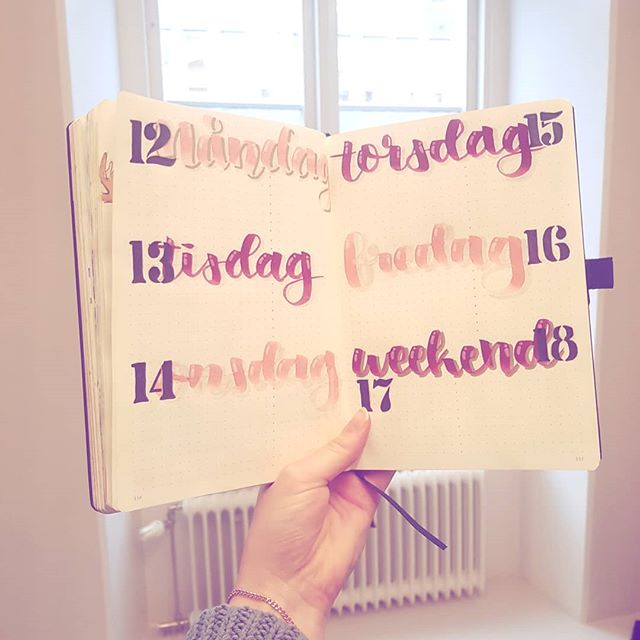 12 Måndag
13 tisdag
14 onsdag
torsdag 15
fredag 16
weekend 18
17